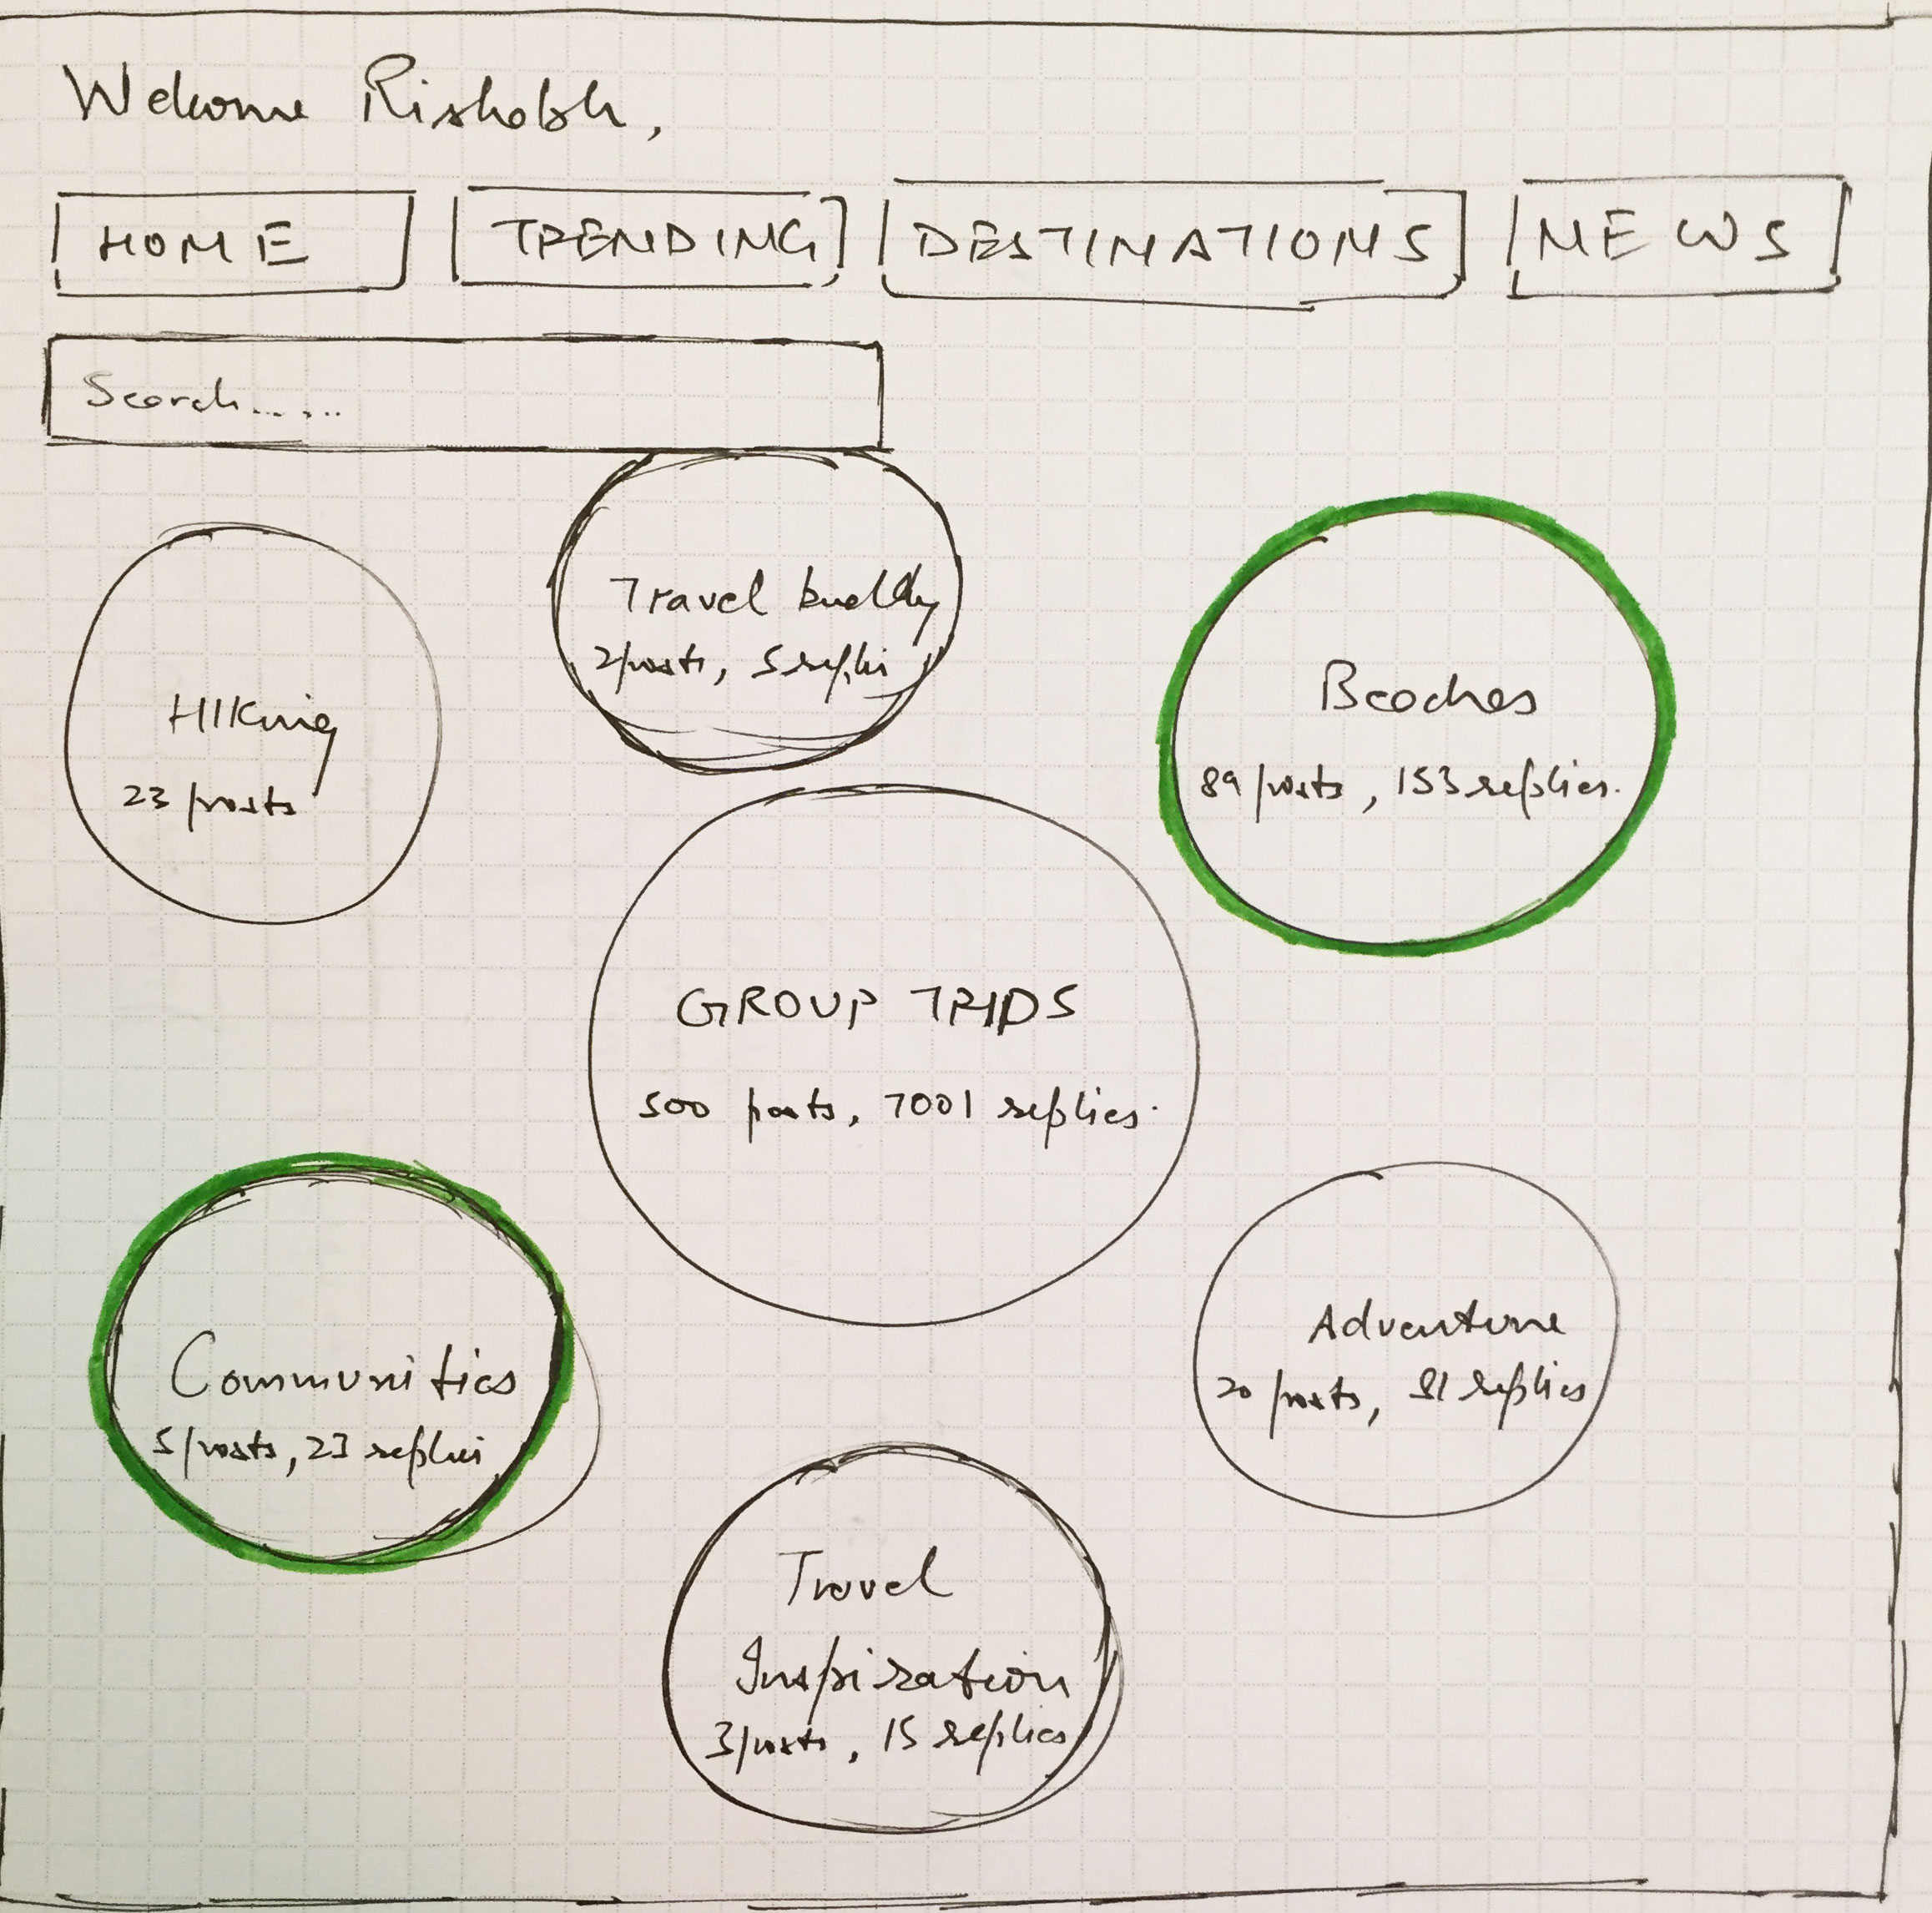 Welcome Rishabh,
HOME TRENDING DESTINATIONS NEWS
Search......
Travel buddy
2 posts, 5 repli
Hiking
23 posts
Beaches
89 posts, 153 replies.
GROUP TRIPS
500 posts, 7001 replies.
Communities
5 posts, 23 replies
Adventure
20 posts, 81 replies
Travel
Inspiration
3 posts, 15 replies